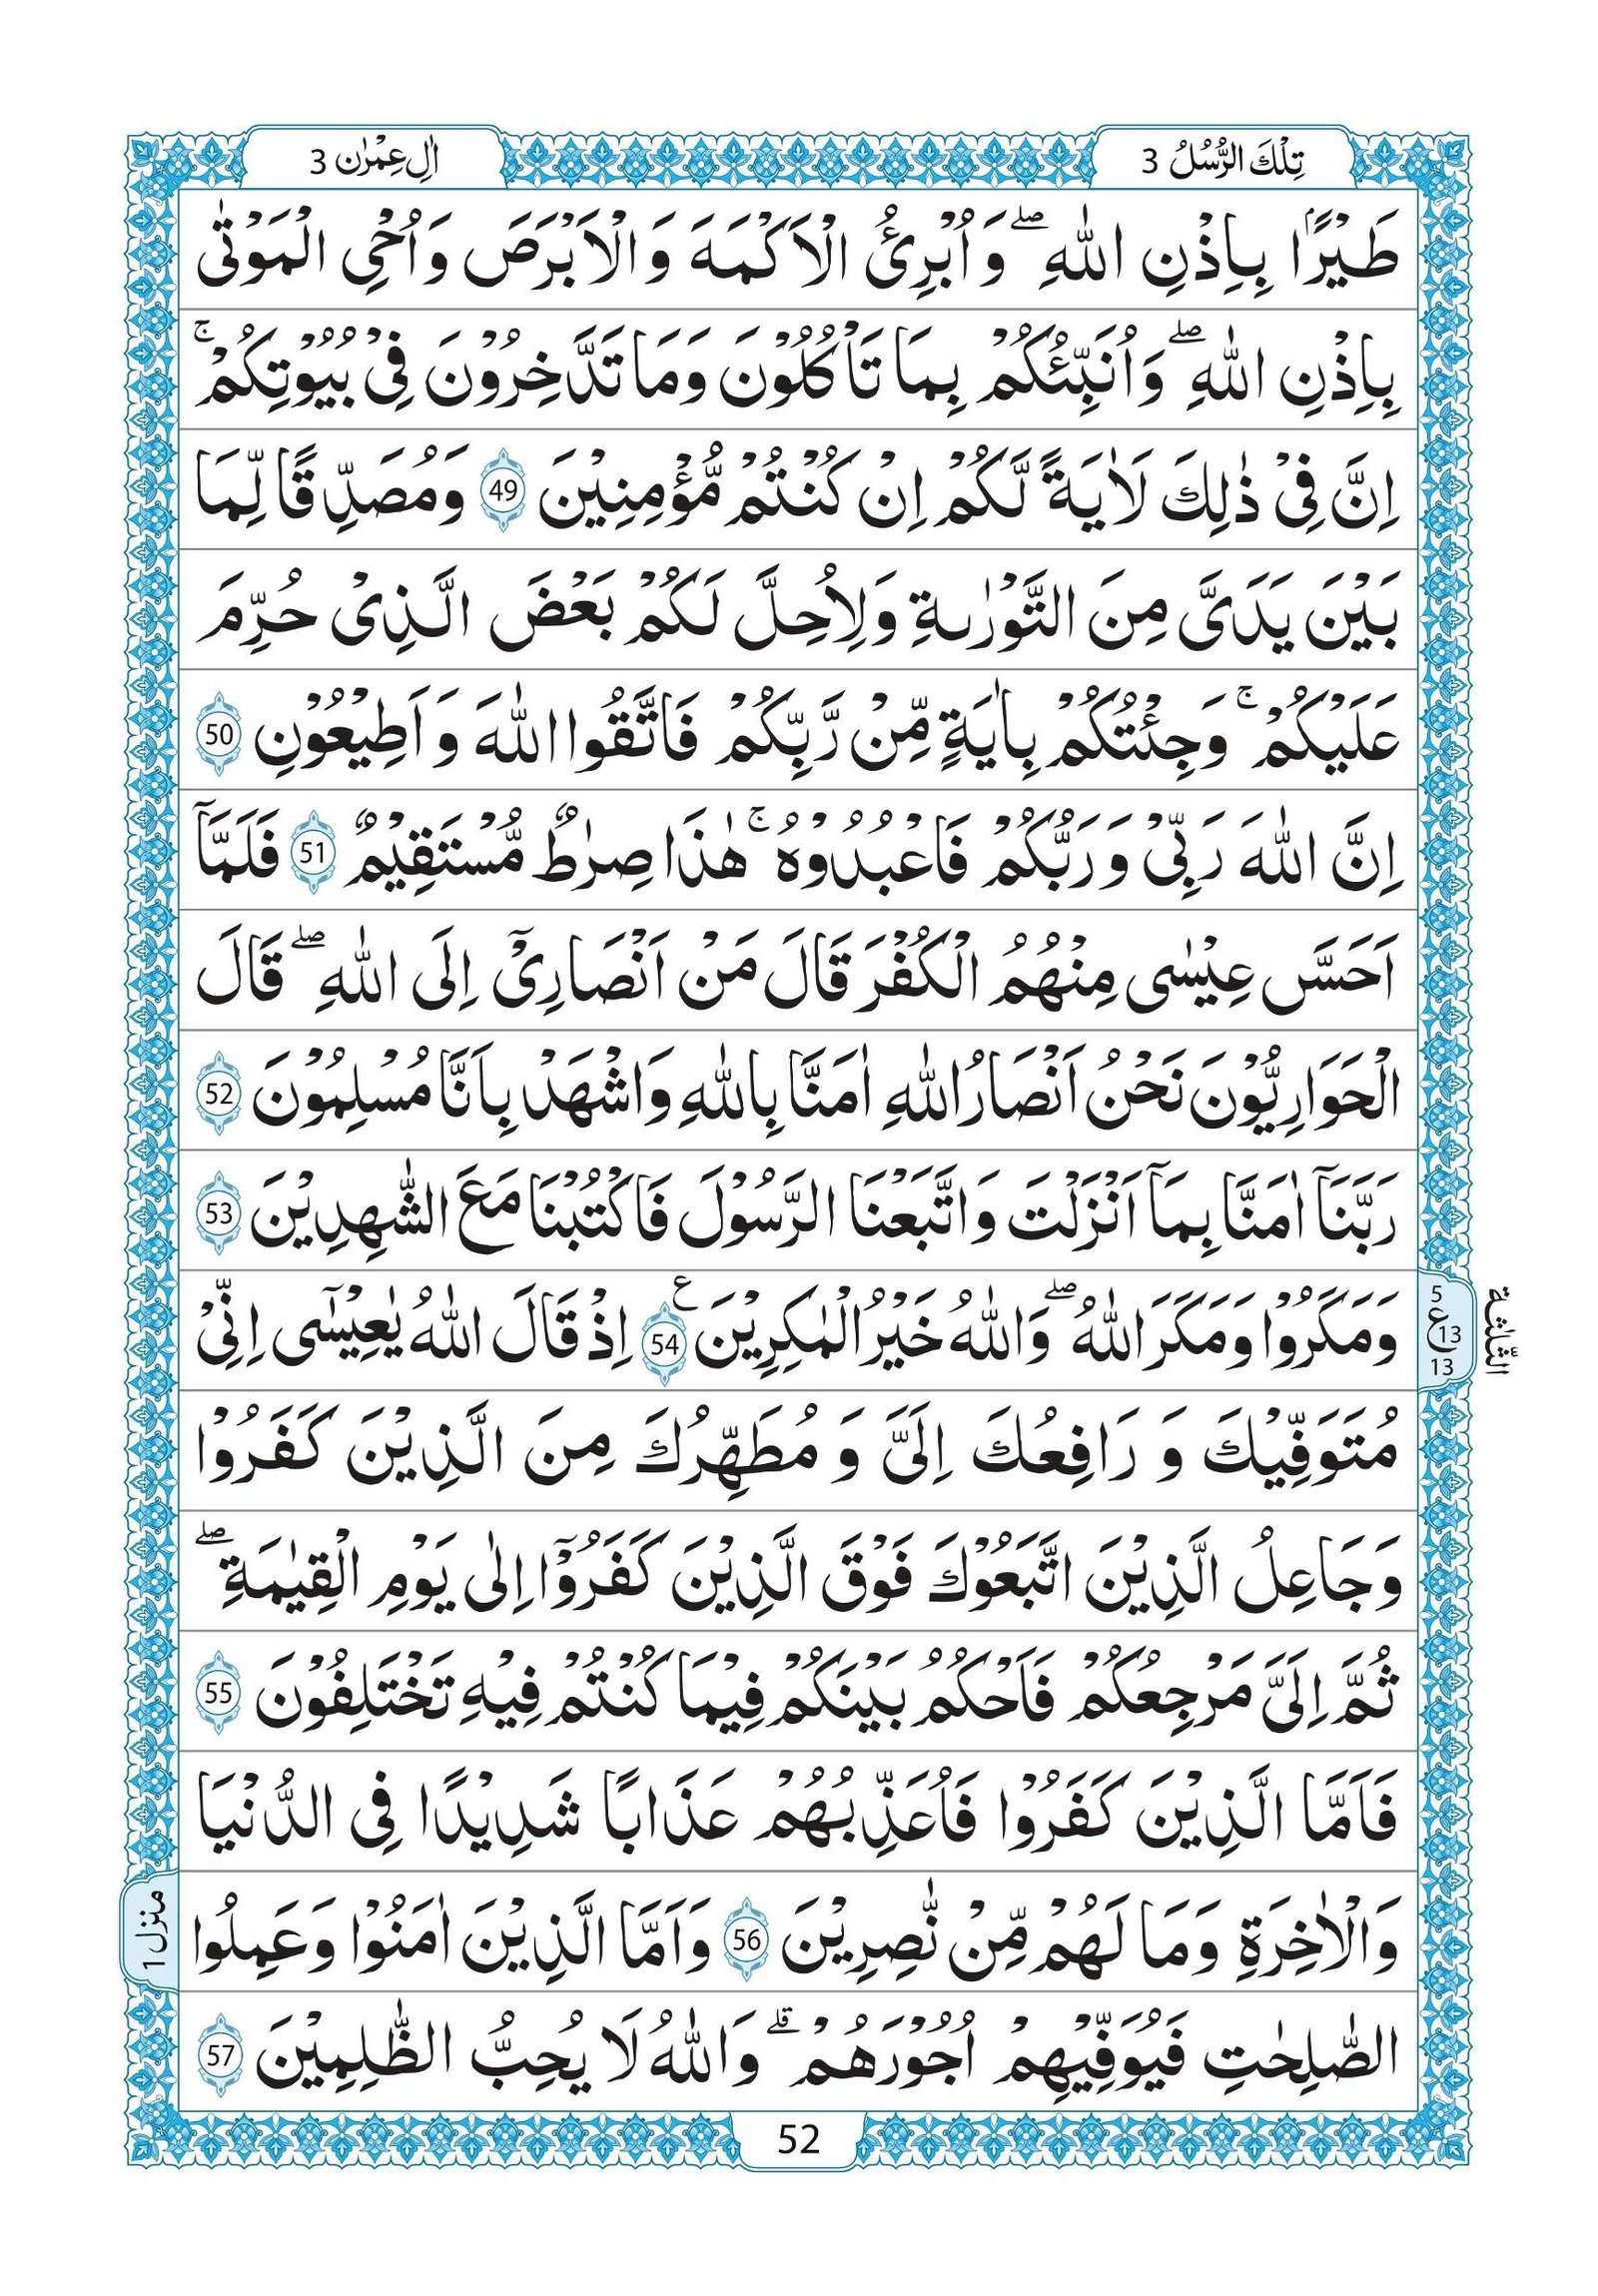 تِلْكَ الرُّسُلُ 3
اٰلِ عِمْرٰن 3
طَيْرًۢا بِاِذْنِ اللّٰهِ ۖ وَاُبْرِئُ الْاَكْمَهَ وَالْاَبْرَصَ وَاُحْىِ الْمَوْتٰى
بِاِذْنِ اللّٰهِ ۖ وَاُنَبِّئُكُمْ بِمَا تَاْكُلُوْنَ وَمَا تَدَّخِرُوْنَ فِىْ بُيُوْتِكُمْ ۚ
اِنَّ فِىْ ذٰلِكَ لَاٰيَةً لَّكُمْ اِنْ كُنْتُمْ مُّؤْمِنِيْنَ 49 وَمُصَدِّقًا لِّمَا
بَيْنَ يَدَىَّ مِنَ التَّوْرٰىةِ وَلِاُحِلَّ لَكُمْ بَعْضَ الَّذِىْ حُرِّمَ
عَلَيْكُمْ ۚ وَجِئْتُكُمْ بِاٰيَةٍ مِّنْ رَّبِّكُمْ فَاتَّقُوا اللّٰهَ وَاَطِيْعُوْنِ 50
اِنَّ اللّٰهَ رَبِّىْ وَرَبُّكُمْ فَاعْبُدُوْهُ ۚ هٰذَا صِرٰطٌ مُّسْتَقِيْمٌ 51 فَلَمَّاۤ
اَحَسَّ عِيْسٰى مِنْهُمُ الْكُفْرَ قَالَ مَنْ اَنْصَارِىْۤ اِلَى اللّٰهِ ۖ قَالَ
الْحَوَارِيُّوْنَ نَحْنُ اَنْصَارُ اللّٰهِ اٰمَنَّا بِاللّٰهِ وَاشْهَدْ بِاَنَّا مُسْلِمُوْنَ 52
رَبَّنَاۤ اٰمَنَّا بِمَاۤ اَنْزَلْتَ وَاتَّبَعْنَا الرَّسُوْلَ فَاكْتُبْنَا مَعَ الشّٰهِدِيْنَ 53
وَمَكَرُوْا وَمَكَرَ اللّٰهُ ۖ وَاللّٰهُ خَيْرُ الْمٰكِرِيْنَ ع 54 اِذْ قَالَ اللّٰهُ يٰعِيْسٰۤى اِنِّىْ
5
ع 13
13
الثّلٰثة
مُتَوَفِّيْكَ وَ رَافِعُكَ اِلَىَّ وَ مُطَهِّرُكَ مِنَ الَّذِيْنَ كَفَرُوْا
وَجَاعِلُ الَّذِيْنَ اتَّبَعُوْكَ فَوْقَ الَّذِيْنَ كَفَرُوْۤا اِلٰى يَوْمِ الْقِيٰمَةِ ۖ
ثُمَّ اِلَىَّ مَرْجِعُكُمْ فَاَحْكُمُ بَيْنَكُمْ فِيْمَا كُنْتُمْ فِيْهِ تَخْتَلِفُوْنَ 55
فَاَمَّا الَّذِيْنَ كَفَرُوْا فَاُعَذِّبُهُمْ عَذَابًا شَدِيْدًا فِى الدُّنْيَا
وَالْاٰخِرَةِ وَمَا لَهُمْ مِّنْ نّٰصِرِيْنَ 56 وَاَمَّا الَّذِيْنَ اٰمَنُوْا وَعَمِلُوا
منزل 1
الصّٰلِحٰتِ فَيُوَفِّيْهِمْ اُجُوْرَهُمْ ۗ وَاللّٰهُ لَا يُحِبُّ الظّٰلِمِيْنَ 57
52